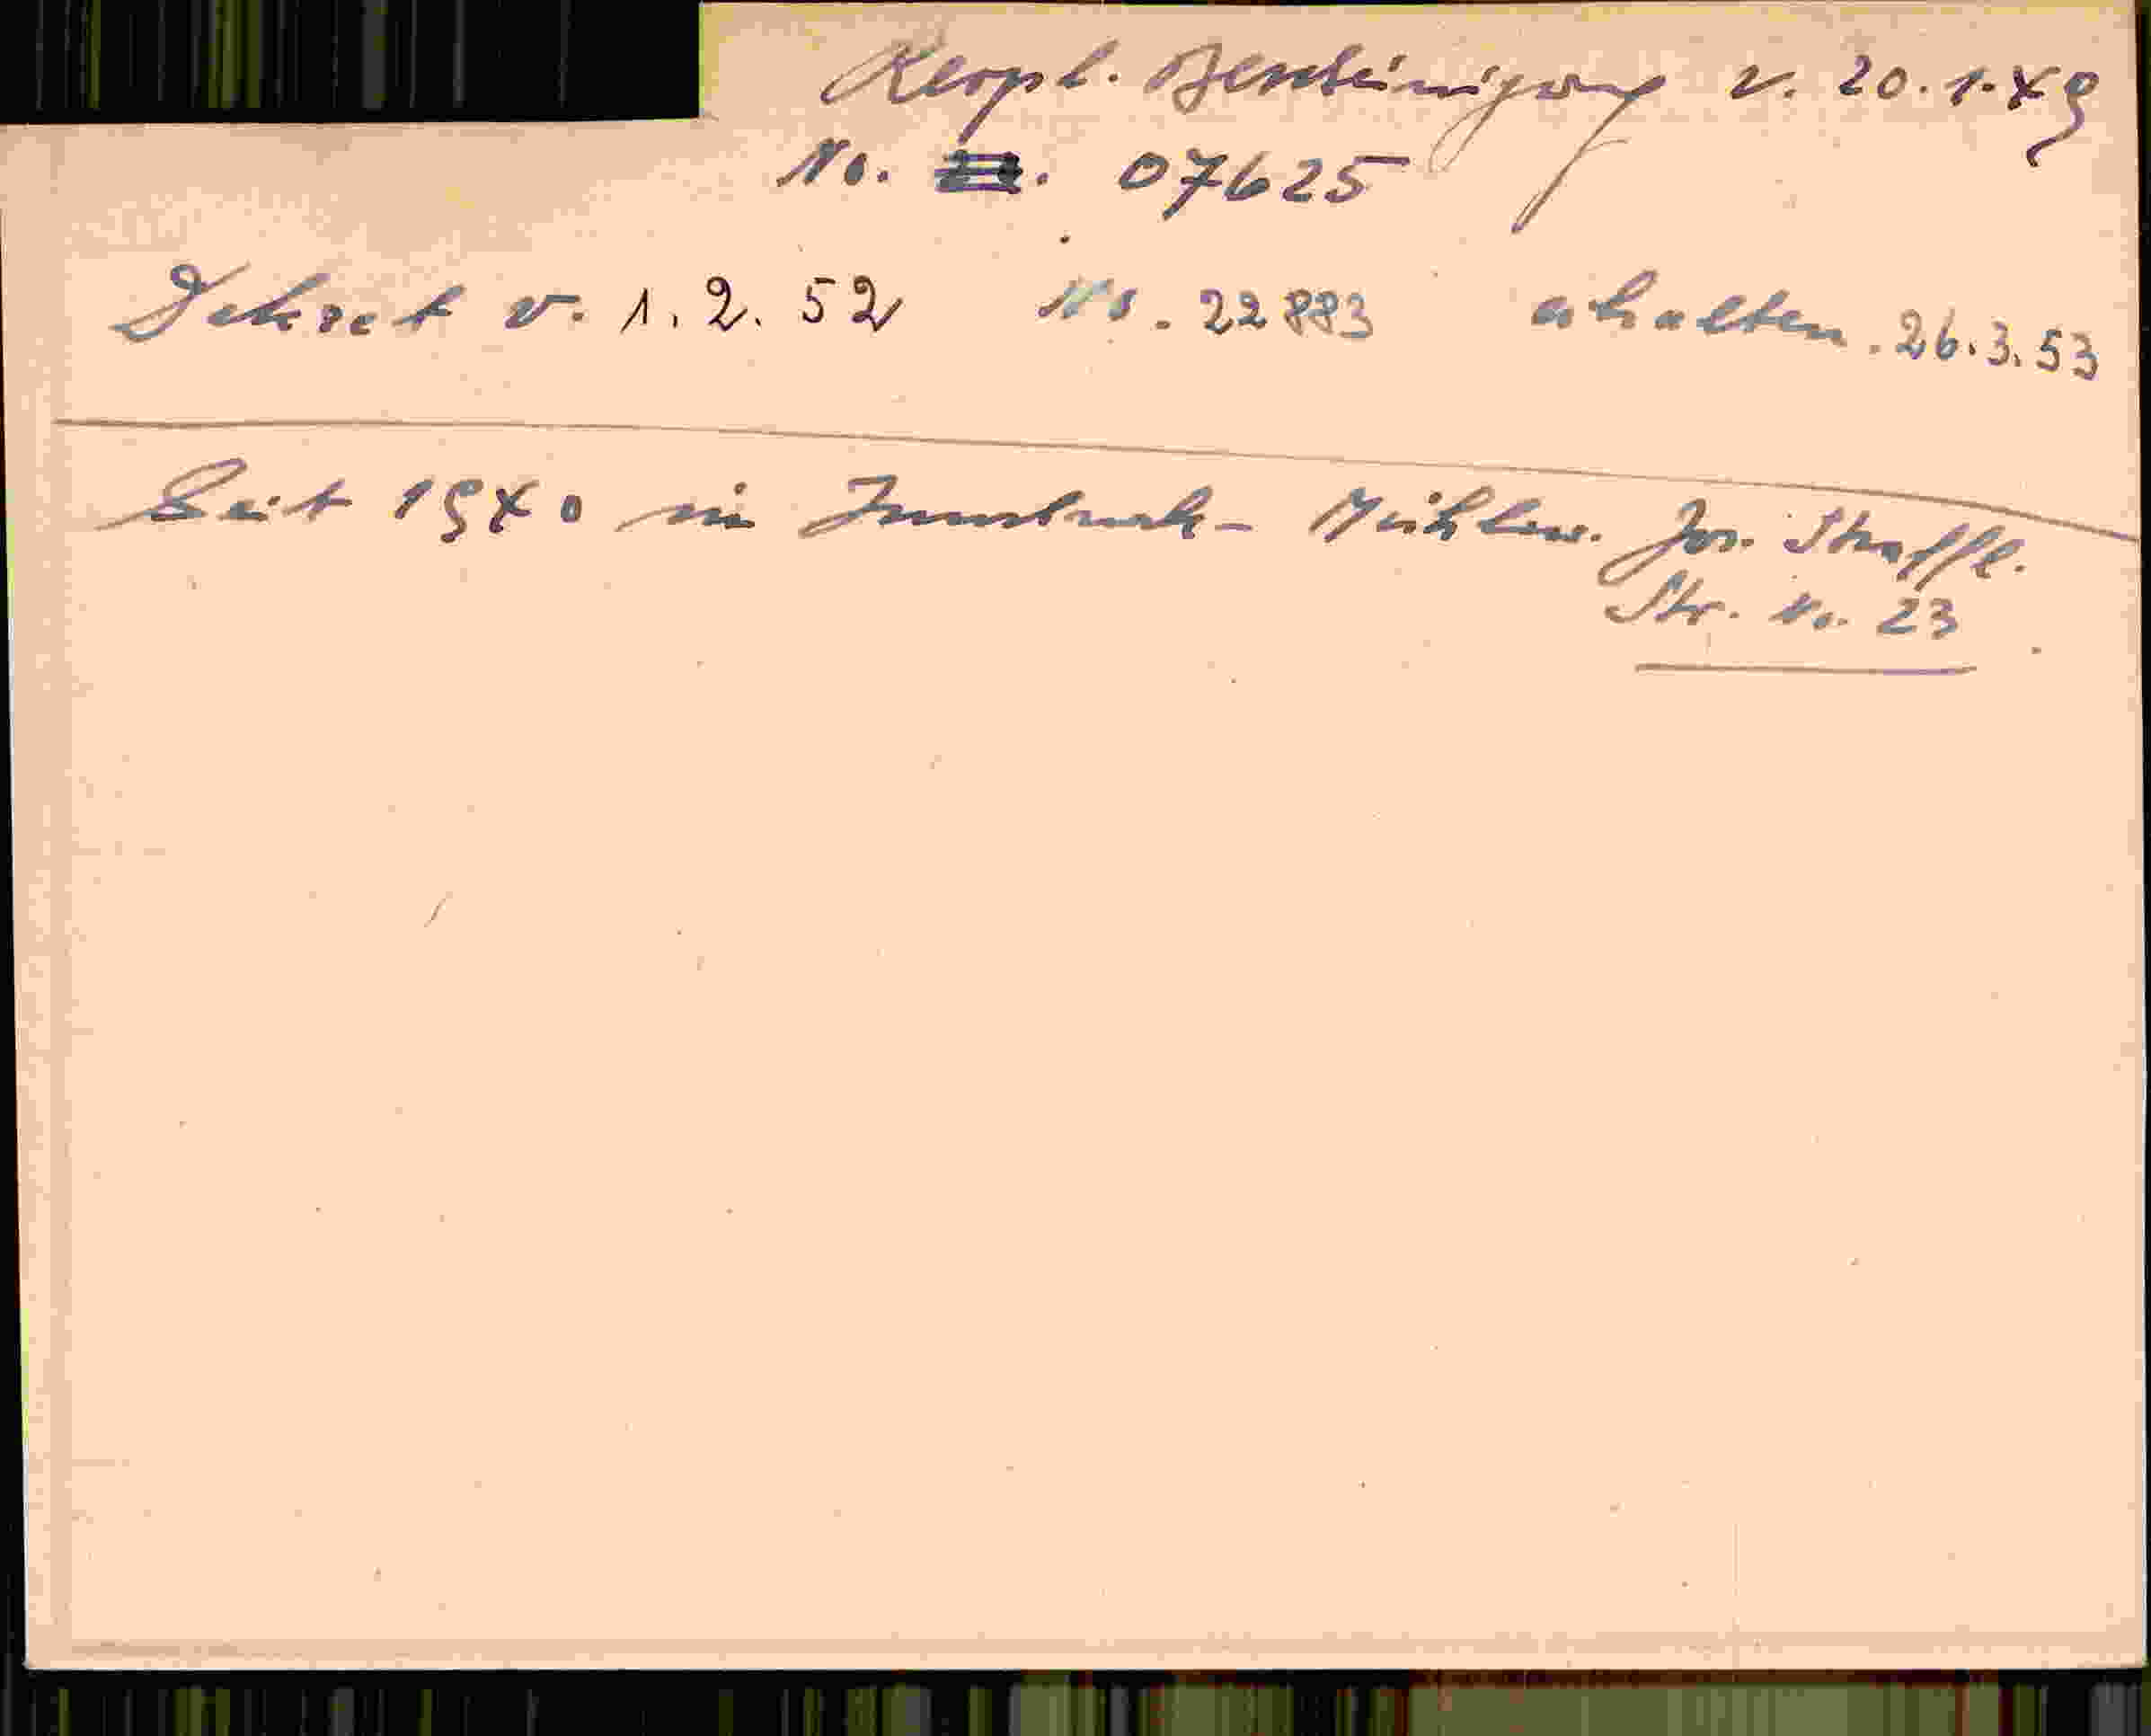 Bescheinigung v. 20.1.49
No. 07625
Dekret v. 1.2.52 No. 22883 erhalten. 26.3.53
Seit 1940 in Innsbruck- Mühlau. Jos. Straffl.
Str. No. 23